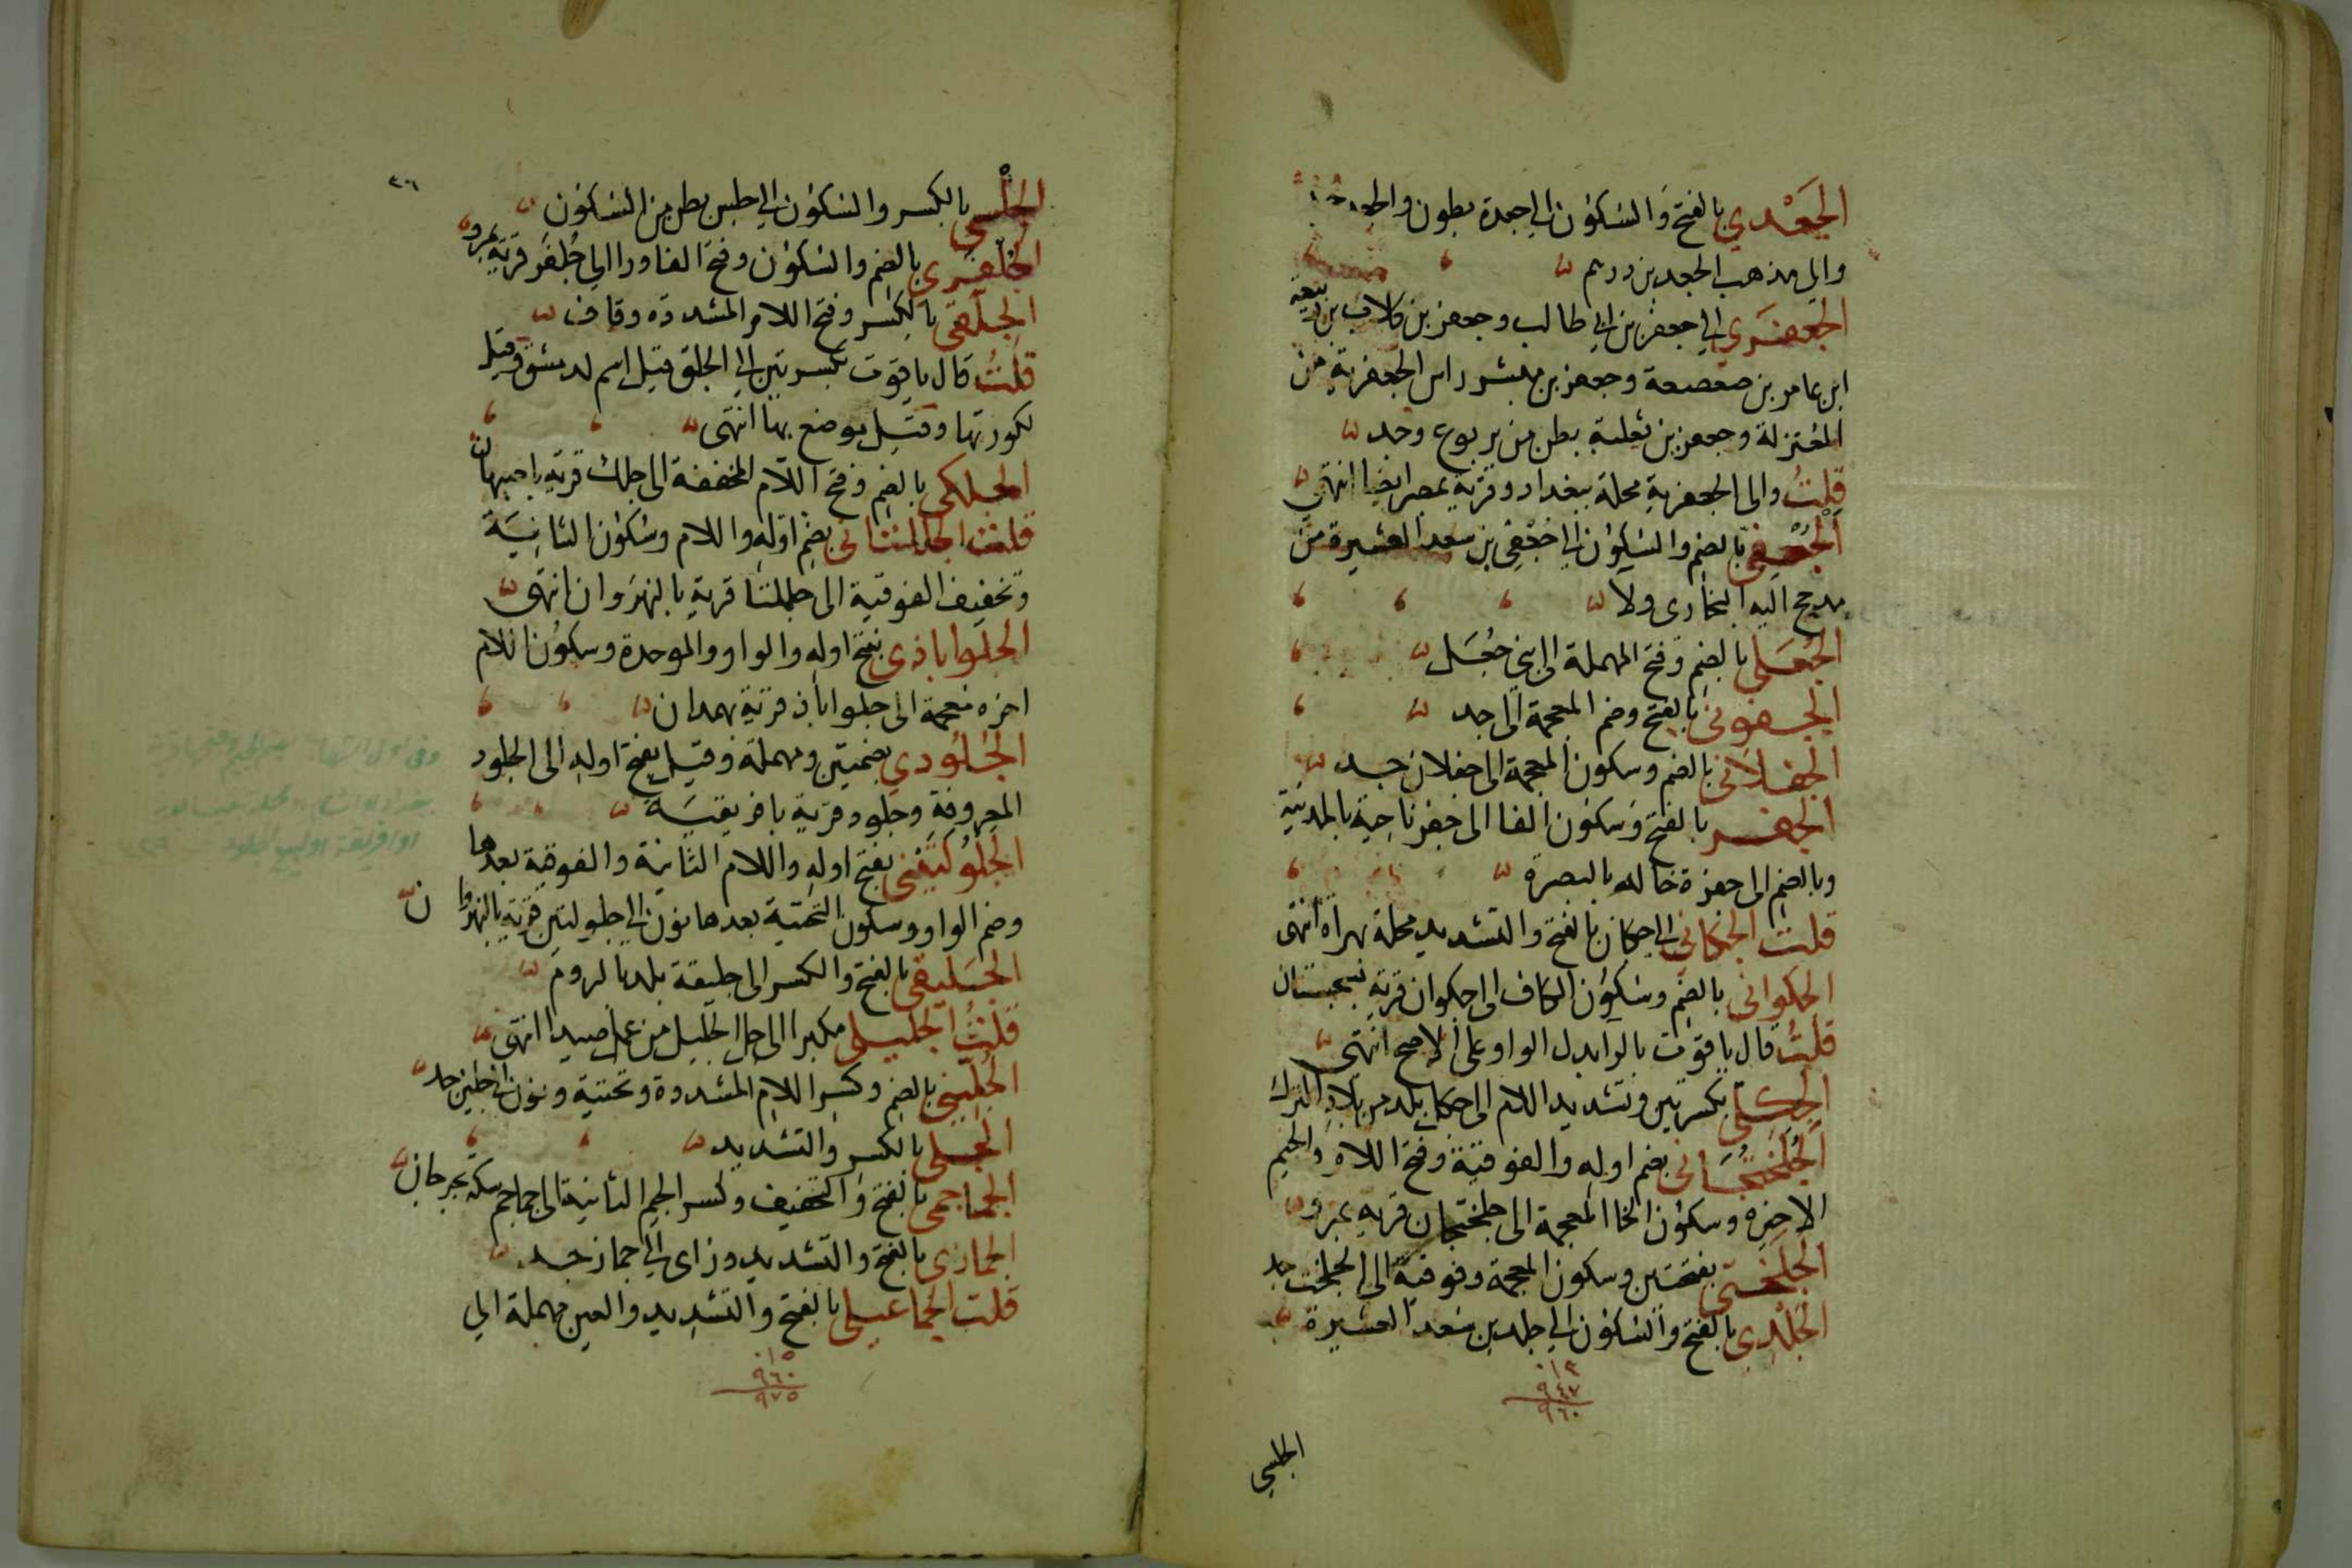 الجَعْدي بالفتح والسكون الى جعدة بطون
والى مذهب الجعد بن درهم
الجعفري الى جعفر بن ابى طالب وجعفر بن كلاب بن ربيعة
ابن عامر بن صعصعة وجعفر بن مبشر راس الجعفرية من
المعتزلة وجعفر بن ثعلبة بطن من يربوع وجد
قلتُ والى الجعفرية محلة ببغداد وقرية بمصر ايضا انتهى
الجُعْفي بالضم والسكون الى جُعْفِي بن سعد العشيرة من
مذحج اليه البخارى ولا
الجُعَلي بالضم وفتح المهملة الى بنى جُعَل
الجغونى بالفتح وضم المعجمة الى جد
الجغلانى بالضم وسكون المعجمة الى جغلان جد
الجفر بالفتح وسكون الفا الى جفر ناحية بالمدينة
وبالضم الى جفرة خالد بالبصرة
قلت الجكانى الى جكان بالفتح والتشديد محلة بهراة انتهى
الجكوانى بالضم وسكون الكاف الى جكوان قرية بسجستان
قلتُ قال ياقوت بالرا بدل الواو على الاصح انتهى
الجكلى بكسرتين وتشديد اللام الى جكل بلد من بلاد الترك
الجُلَخْتُجَانى بضم اوله والفوقية وفتح اللام والجيم
الاخيرة وسكون الخا المعجمة الى جلختجان قرية بمرو
الجَلَخْتى بفتحتين وسكون المعجمة وفوقية الى الجلخت جد
الجَلْدِي بالفتح والسكون الى جلد بن سعد العشيرة
١٣
٩٤٧
٩٦٠
الجلسى
٤٦
الجِلْسي بالكسر والسكون الى جلس بطن من السكون
الجُلْفَرى بالضم والسكون وفتح الفا ورا الى جُلْفَر قرية بمرو
الجِلَّقى بالكسر وفتح اللام المشددة وقاف
قلتُ قال ياقوت بكسرتين الى الجلق قيل اسم لدمشق وقيل
لكورتها وقيل موضع بها انتهى
الجلكى بالضم وفتح اللام المخففة الى جلك قرية باصبهان
قلت الجُلُلْتانى بضم اوله واللام وسكون الثانِيَة
وتخفيف الفوقية الى جللتا قرية بالنهروان انتهى
الجلواباذي بفتح اوله والواو والموحدة وسكون اللام
اخره معجمة الى جلواباذ قرية بهمدان
الجُلُودي بضمتين ومهملة وقيل بفتح اوله الى الجلود
المعروفة وجلود قرية بافريقيَة
الجَلُولَتينى بفتح اوله واللام الثانية والفوقية بعدها
وضم الواو وسكون التحتية بعدها نون الى جلولتين قرية بالنهروان
الجَليقى بالفتح والكسر الى جليقة بلد بالروم
قلتُ الجليلى مكبرا الى جبل الجليل من عمل صيدا انتهى
الجُلِّيني بالضم وكسر اللام المشددة وتحتية ونون الى جلين جد
الجلى بالكسر والتشديد
الجماجمى بالفتح والتخفيف وكسر الجيم الثانية الى جماجم سكة بجرجان
الجمازى بالفتح والتشديد وزاى الى جماز جد
قلت الجماعيلى بالفتح والتشديد والعين مهملة الى
١٥
٩٦٠
٩٧٥